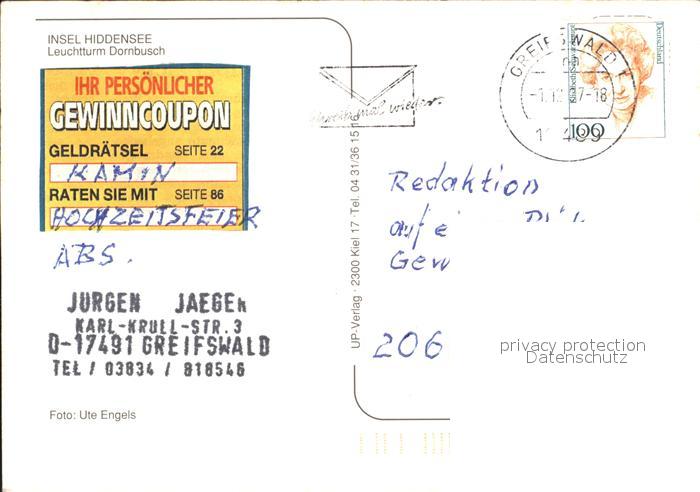 INSEL HIDDENSEE
Leuchtturm Dornbusch
IHR PERSÖNLICHER
GEWINNCOUPON
GELDRÄTSEL SEITE 22
KAMIN
RATEN SIE MIT SEITE 86
HOCHZEITSFEIER
ABS.
JÜRGEN JAEGER
KARL-KRULL-STR. 3
D-17491 GREIFSWALD
TEL / 03834 / 818546
Foto: Ute Engels
UP-Verlag · 2300 Kiel 17 · Tel. 04 31/36 15 1
mal wieder
GREIFSWALD 1
Deutschland
100
Redaktion
auf
Gew
206
privacy protection
Datenschutz